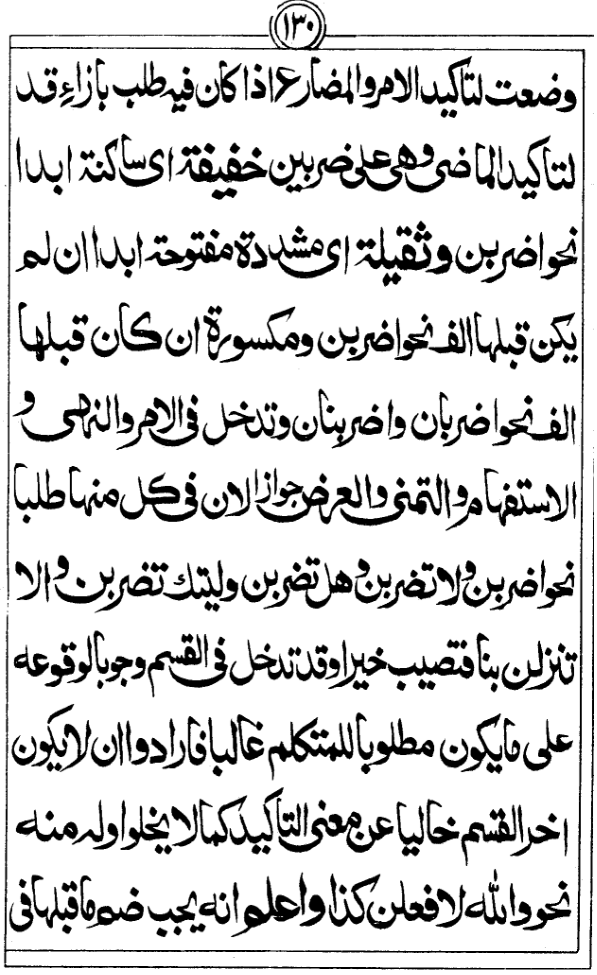 ١٣٠
وضعت لتاكيد الامر والمضارع اذا كان فيه طلب بازاء قد
لتاكيد الماضى وهى على ضربين خفيفة اى ساكنة ابدا
نحو اضربن وثقيلة اى مشددة مفتوحة ابدا ان لم
يكن قبلها الف نحو اضربن ومكسورة ان كان قبلها
الف نحو اضربان واضربنان وتدخل فى الامر والنهى و
الاستفهام والتمنى والعرض جوازا لان فى كل منها طلبا
نحو اضربن ولا تضربن وهل تضربن وليتك تضربن والا
تنزلن بنا فتصيب خيرا وقد تدخل فى القسم وجوبا لوقوعه
على مايكون مطلوبا للمتكلم غالبا فارادوا ان لايكون
اخر القسم خاليا عن معنى التأكيد كما لا يخلوا وله منه
نحو والله لافعلن كذا واعلم انه يجب ضم ماقبلها فى